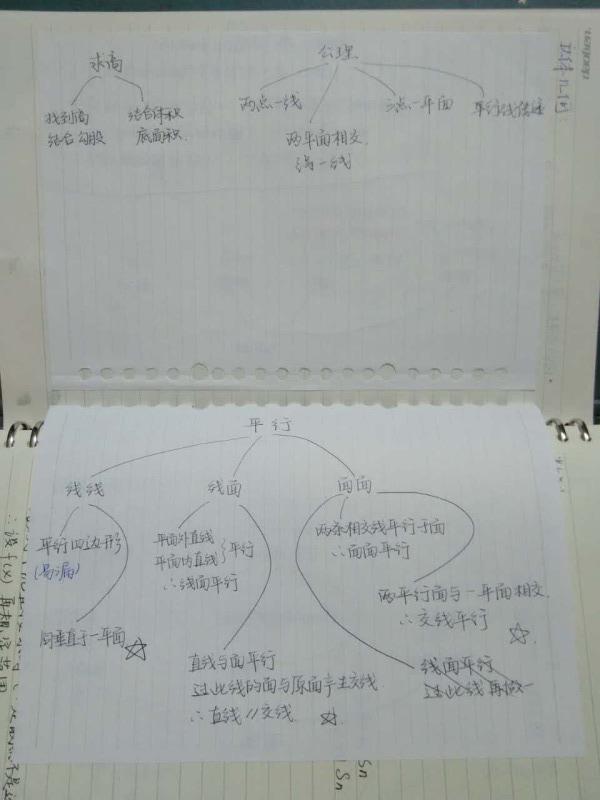 求高
公理
找到高
结合勾股
结合体积
底面积
两点一线
两平面相交
得一线
三点一平面
平行线传递
平行
线线
线面
面面
平行四边形
(易漏)
同垂直于一平面
平面外直线
平面内直线 } 平行
∴线面平行
直线与面平行
过此线的面与原面产生交线
∴直线//交线
两条相交线平行于面
∴面面平行
两平行面与一平面相交
∴交线平行
线面平行
过此线再做一
Sn